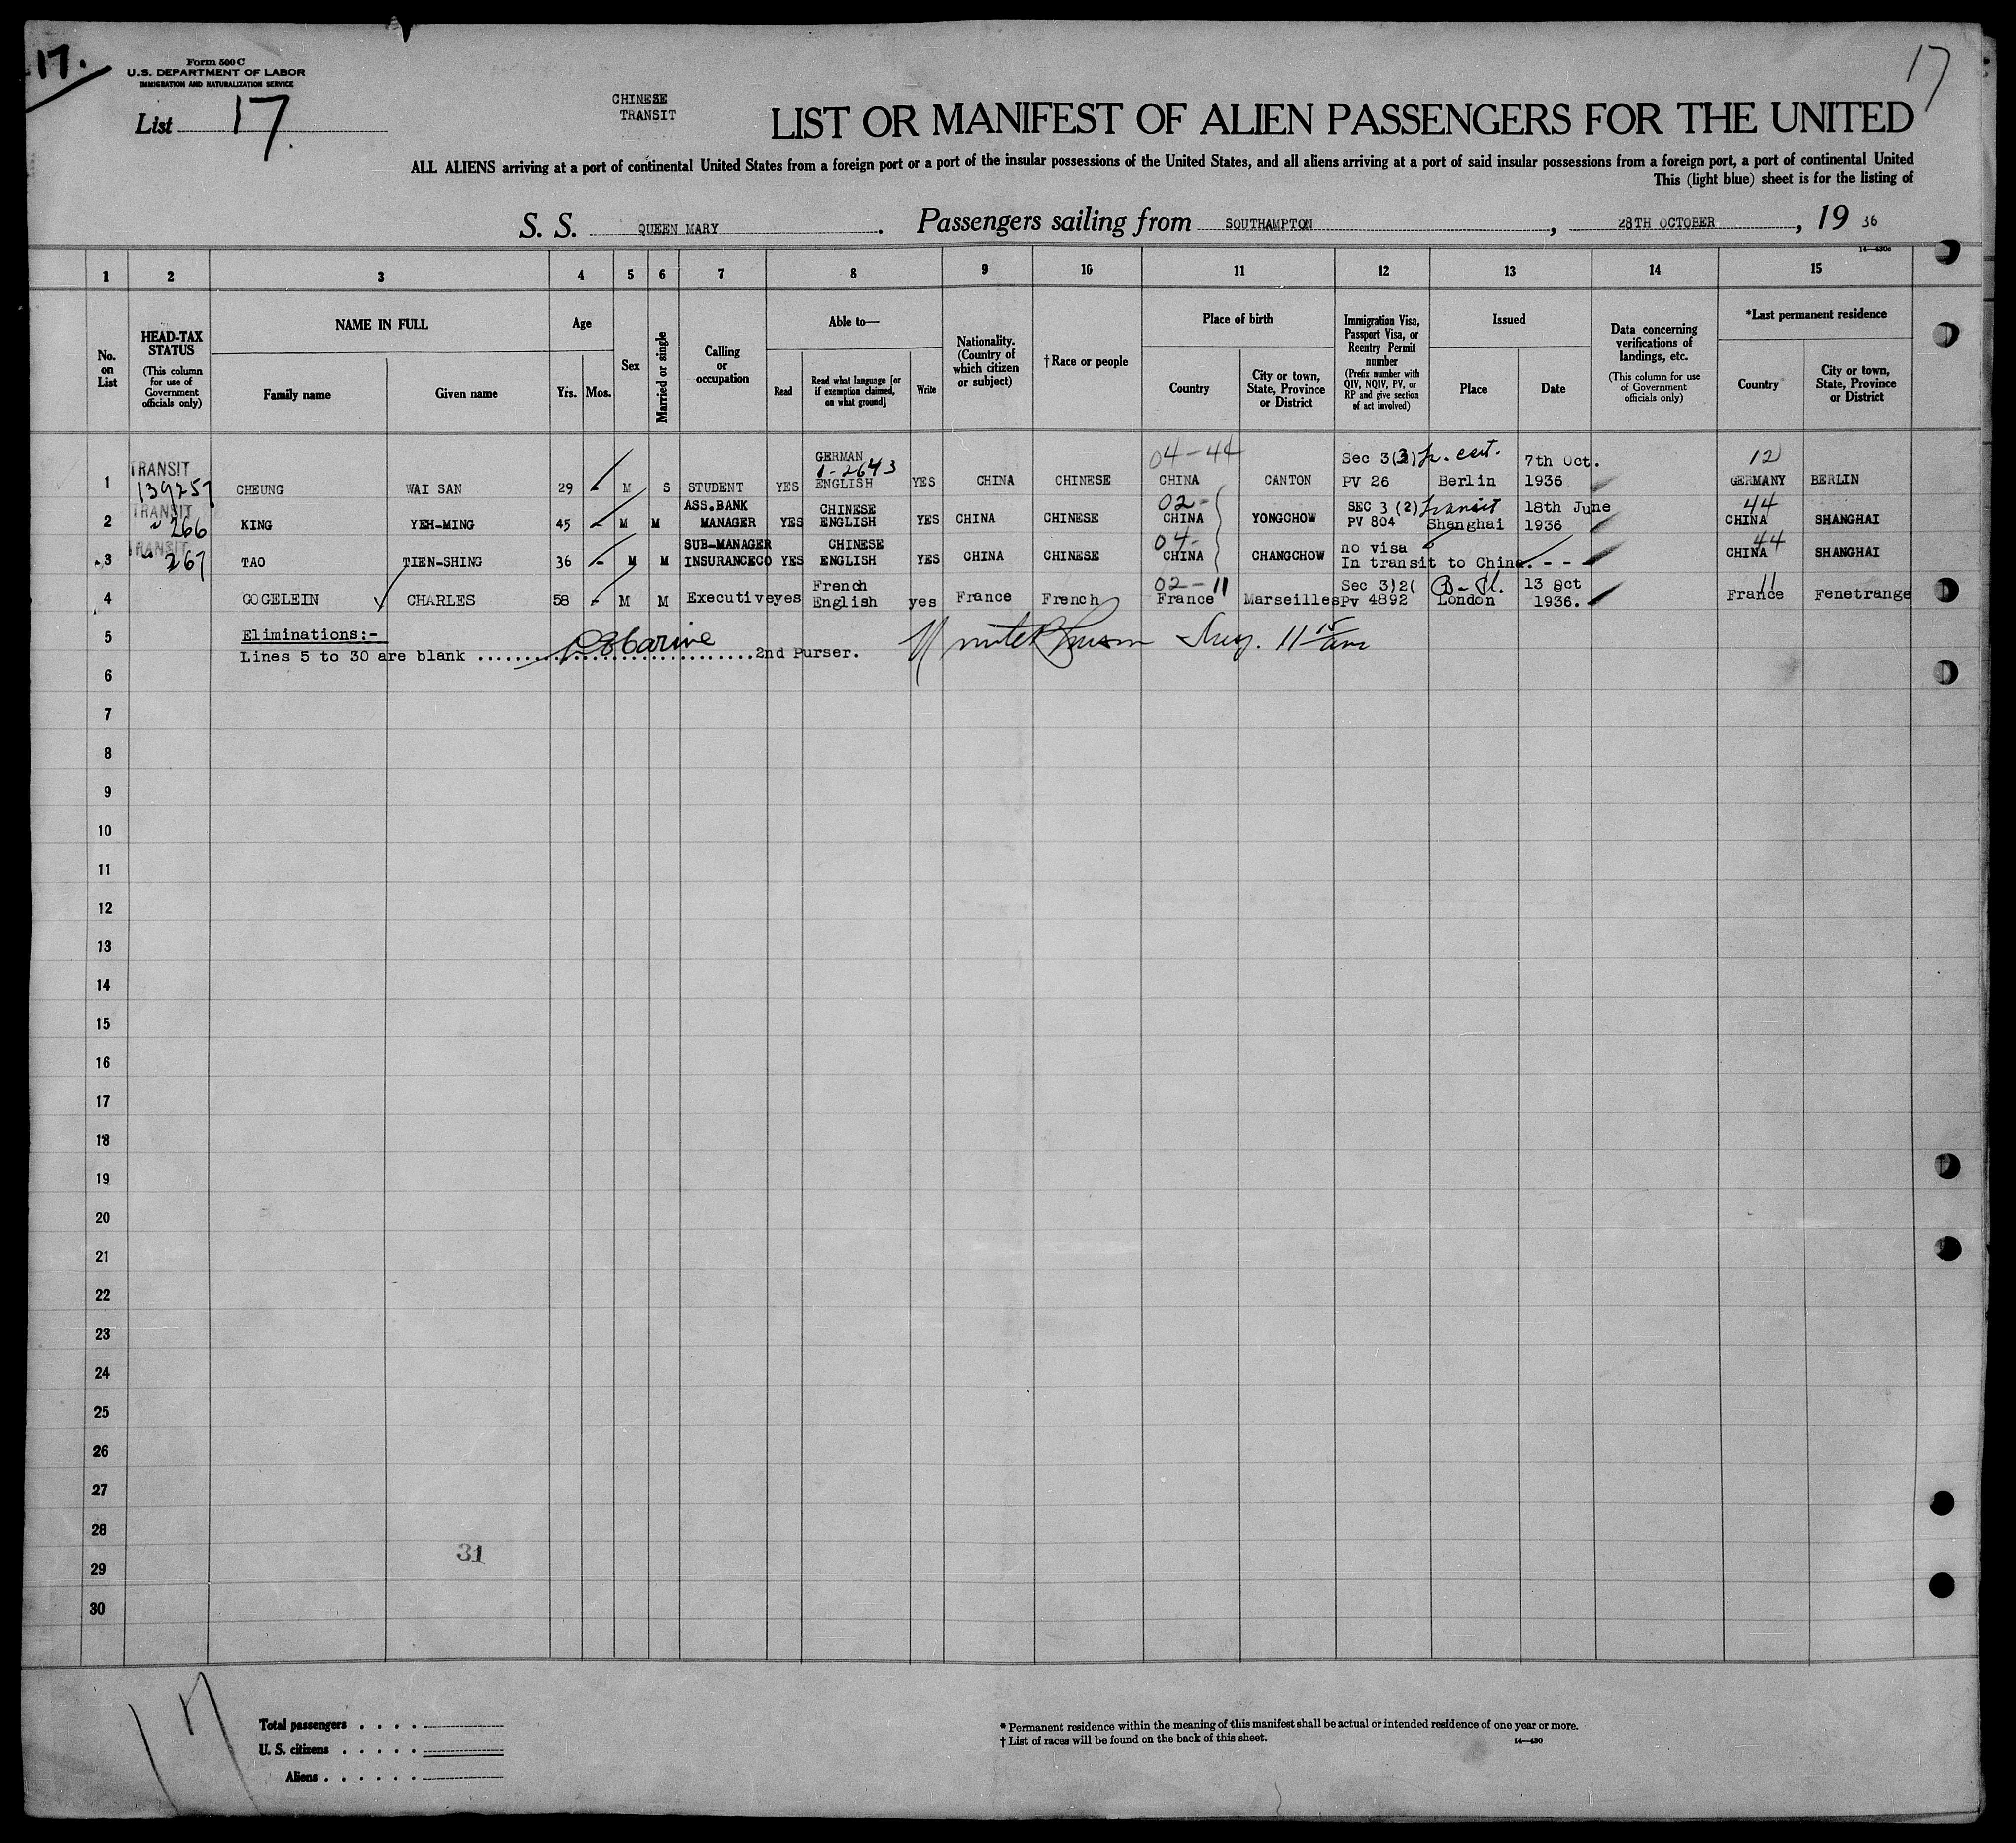 17.
17
Form 500 C
U.S. DEPARTMENT OF LABOR
IMMIGRATION AND NATURALIZATION SERVICE
List 17.
CHINESE
TRANSIT
LIST OR MANIFEST OF ALIEN PASSENGERS FOR THE UNITED
ALL ALIENS arriving at a port of continental United States from a foreign port or a port of the insular possessions of the United States, and all aliens arriving at a port of said insular possessions from a foreign port, a port of continental United
This (light blue) sheet is for the listing of
S. S. QUEEN MARY. Passengers sailing from SOUTHAMPTON, 28TH OCTOBER, 19 36
14—430c
1 2 3 4 5 6 7 8 9 10 11 12 13 14 15
No. on List
HEAD-TAX STATUS
(This column for use of Government officials only)
NAME IN FULL
Family name
Given name
Age
Yrs. Mos.
Sex
Married or single
Calling or occupation
Able to—
Read
Read what language [or if exemption claimed, on what ground]
Write
Nationality. (Country of which citizen or subject)
†Race or people
Place of birth
Country
City or town, State, Province or District
Immigration Visa, Passport Visa, or Reentry Permit number
(Prefix number with QIV, NQIV, PV, or RP and give section of act involved)
Issued
Place
Date
Data concerning verifications of landings, etc.
(This column for use of Government officials only)
*Last permanent residence
Country
City or town, State, Province or District
TRANSIT GERMAN 04-44 Sec 3(3) tr. cert. 7th Oct. 12
1 139257 CHEUNG WAI SAN 29 M S STUDENT YES 1-2643 ENGLISH YES CHINA CHINESE CHINA CANTON PV 26 Berlin 1936 GERMANY BERLIN
TRANSIT ASS.BANK CHINESE 02- SEC 3 (2) Transit 18th June 44
2 266 KING YEH-MING 45 M M MANAGER YES ENGLISH YES CHINA CHINESE CHINA YONGCHOW PV 804 Shanghai 1936 CHINA SHANGHAI
TRANSIT SUB-MANAGER CHINESE 04- no visa 44
3 267 TAO TIEN-SHING 36 M M INSURANCECO YES ENGLISH YES CHINA CHINESE CHINA CHANGCHOW In transit to China. - - - CHINA SHANGHAI
French 02-11 Sec 3)2( 13 Oct 11
4 GOGELEIN CHARLES 58 M M Executive yes English yes France French France Marseilles Pv 4892 London 1936. France Fenetrange
5 Eliminations:-
Lines 5 to 30 are blank ............................ 2nd Purser. 11 15 am
6
7
8
9
10
11
12
13
14
15
16
17
18
19
20
21
22
23
24
25
26
27
28
31
29
30
17
Total passengers . . . .
U. S. citizens . . . . .
Aliens . . . . . .
* Permanent residence within the meaning of this manifest shall be actual or intended residence of one year or more.
† List of races will be found on the back of this sheet.
14—430